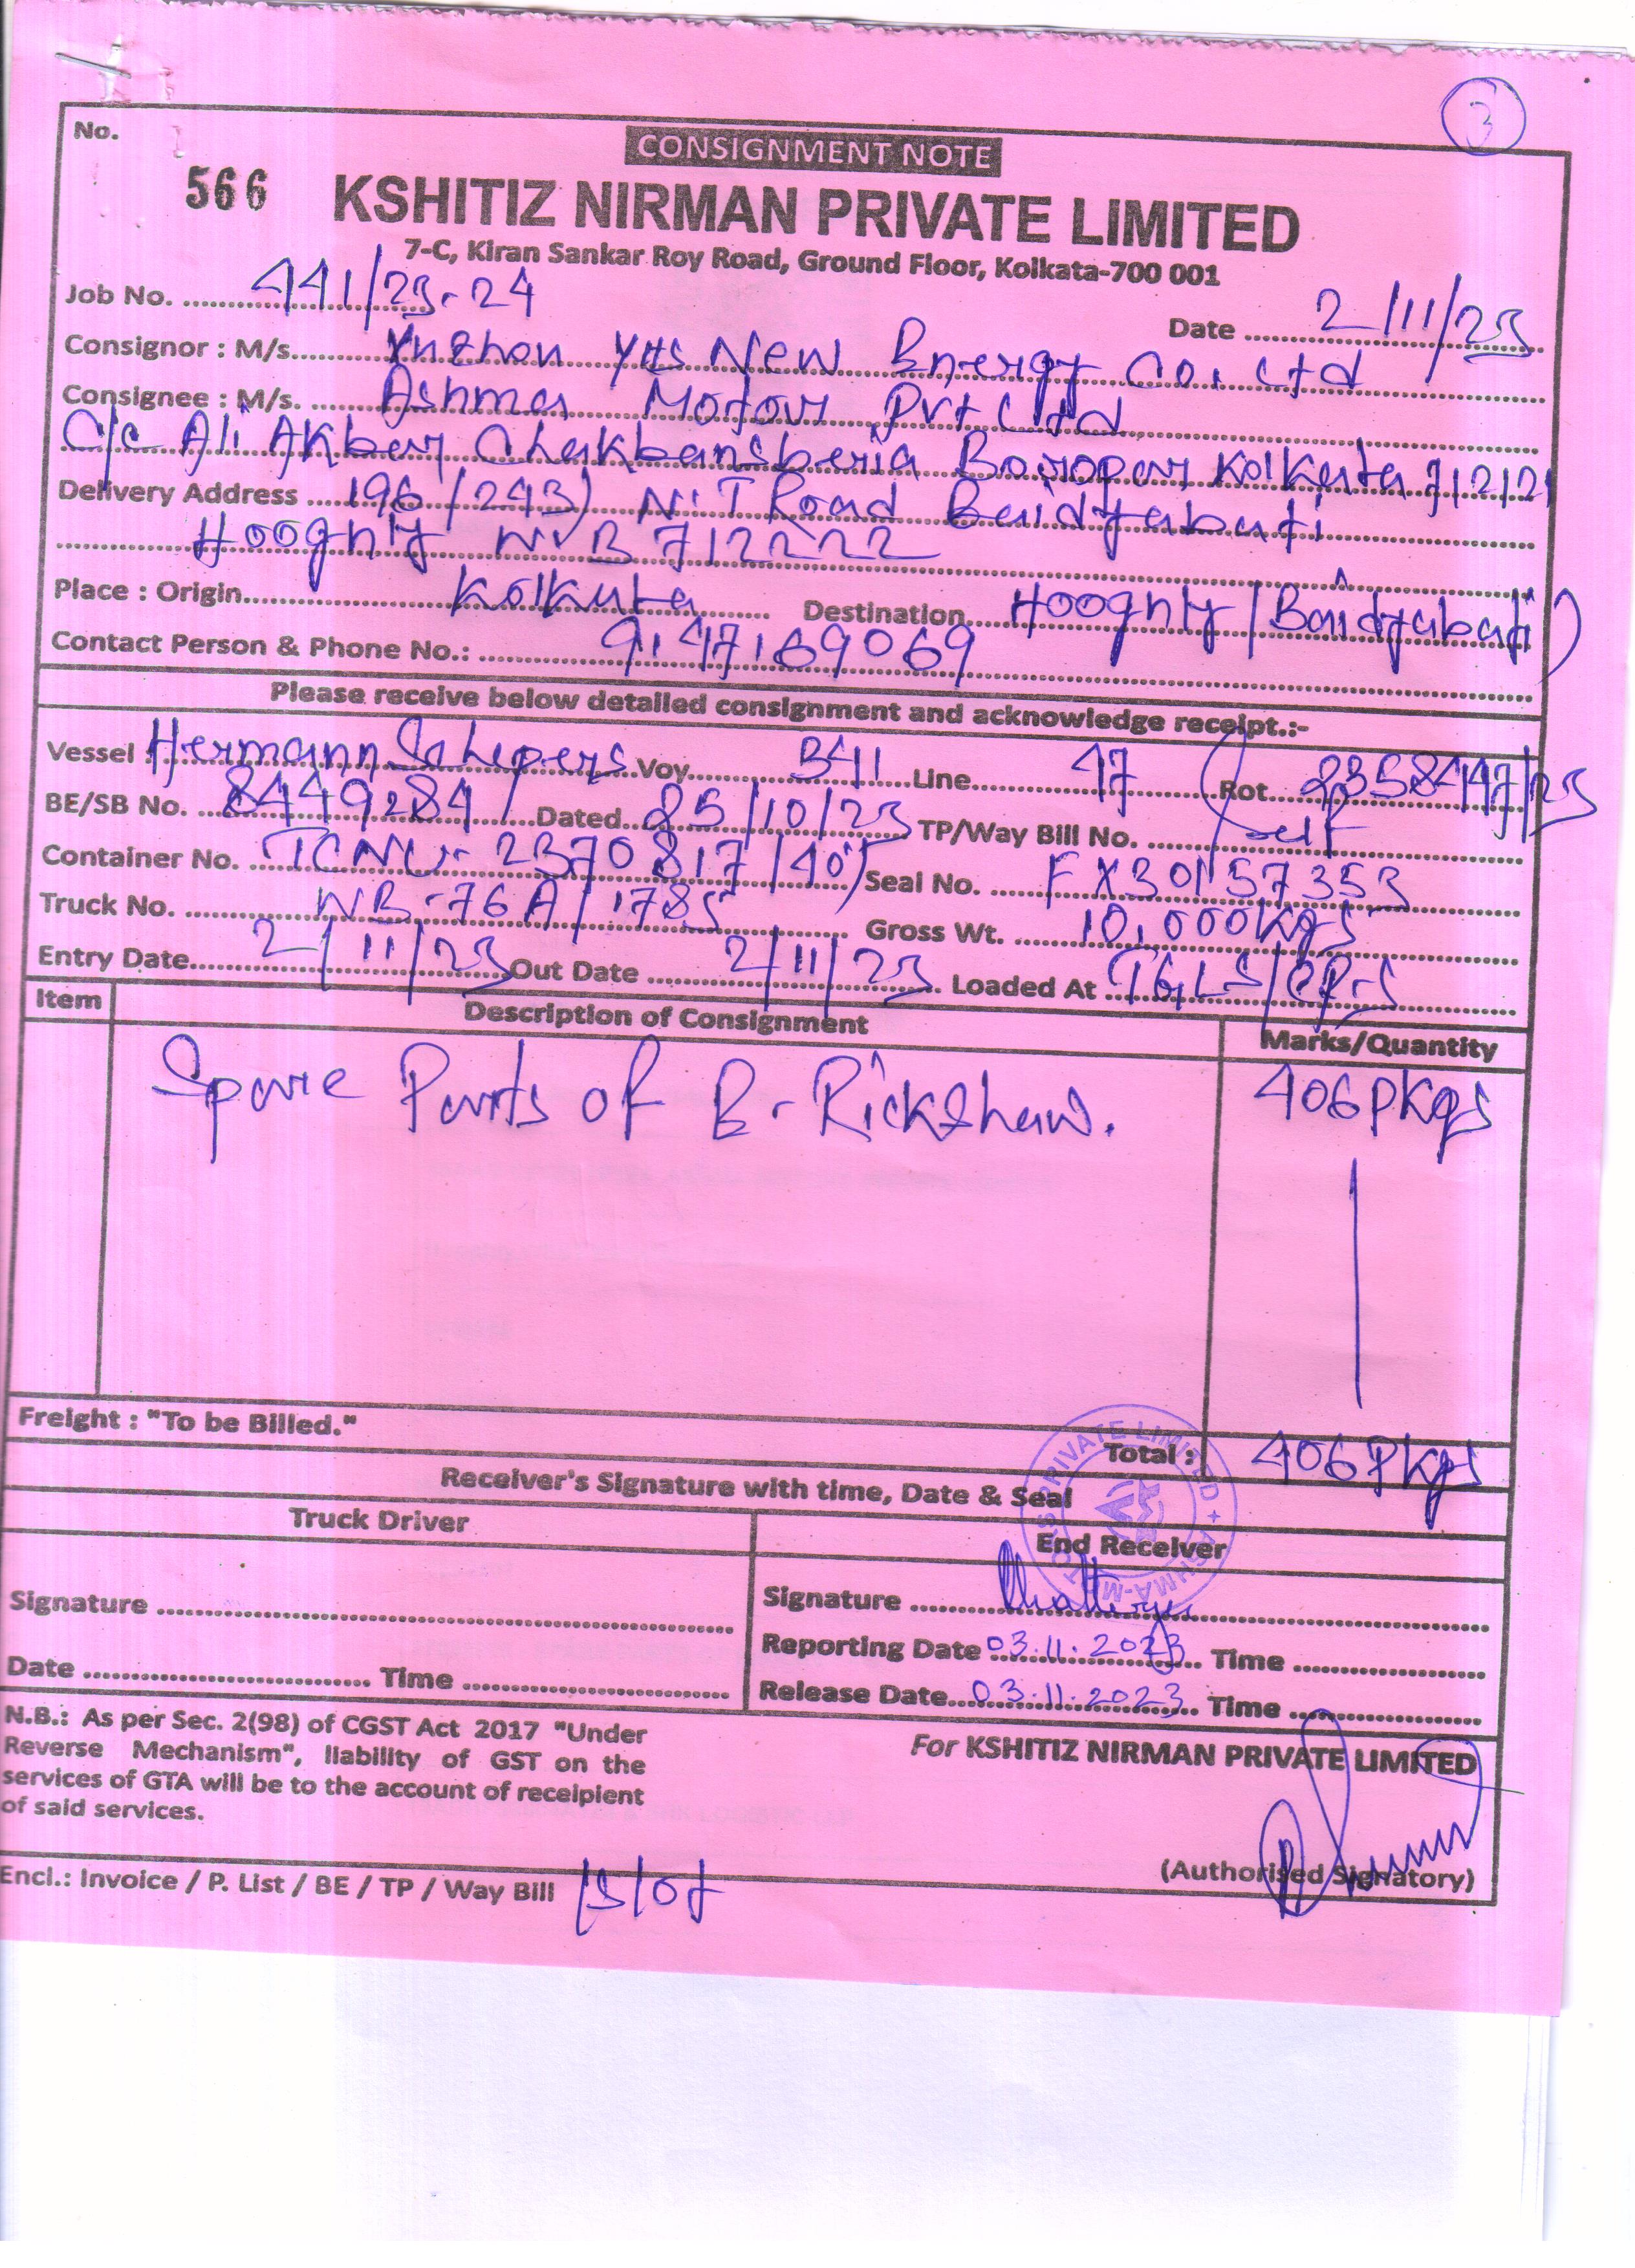 3
No.
CONSIGNMENT NOTE
566 KSHITIZ NIRMAN PRIVATE LIMITED
7-C, Kiran Sankar Roy Road, Ground Floor, Kolkata-700 001
Job No. 441/23-24 Date 2/11/23
Consignor : M/s. New Energy Co. Ltd
Consignee : M/s. Ashma Motor Pvt Ltd
Ali Akbar Chakbansberia Kolkata 712121
Delivery Address 196/(243) N.T Road Baidyabati
Hooghly W.B 712222
Place : Origin Kolkata Destination Hooghly (Baidyabati)
Contact Person & Phone No.: 9147169069
Please receive below detailed consignment and acknowledge receipt.:-
Vessel Hermann Schepers Voy. 3411 Line 47 Rot.
BE/SB No. 8449284 Dated 25/10/23 TP/Way Bill No. Self
Container No. TCNU-2370817/40' Seal No. FX30157353
Truck No. WB-76A/1785 Gross Wt. 10,000Kgs
Entry Date 2/11/23 Out Date 2/11/23 Loaded At
Item Description of Consignment Marks/Quantity
Spare Parts of E-Rickshaw. 406Pkgs
Freight : "To be Billed."
Total : 406Pkgs
Receiver's Signature with time, Date & Seal
Truck Driver End Receiver
PRIVATE LIMITED
Signature Signature
Reporting Date 03.11.2023 Time
Date Time Release Date 03.11.2023 Time
N.B.: As per Sec. 2(98) of CGST Act 2017 "Under
Reverse Mechanism", liability of GST on the
services of GTA will be to the account of receipient
of said services.
For KSHITIZ NIRMAN PRIVATE LIMITED
(Authorised Signatory)
Encl.: Invoice / P. List / BE / TP / Way Bill